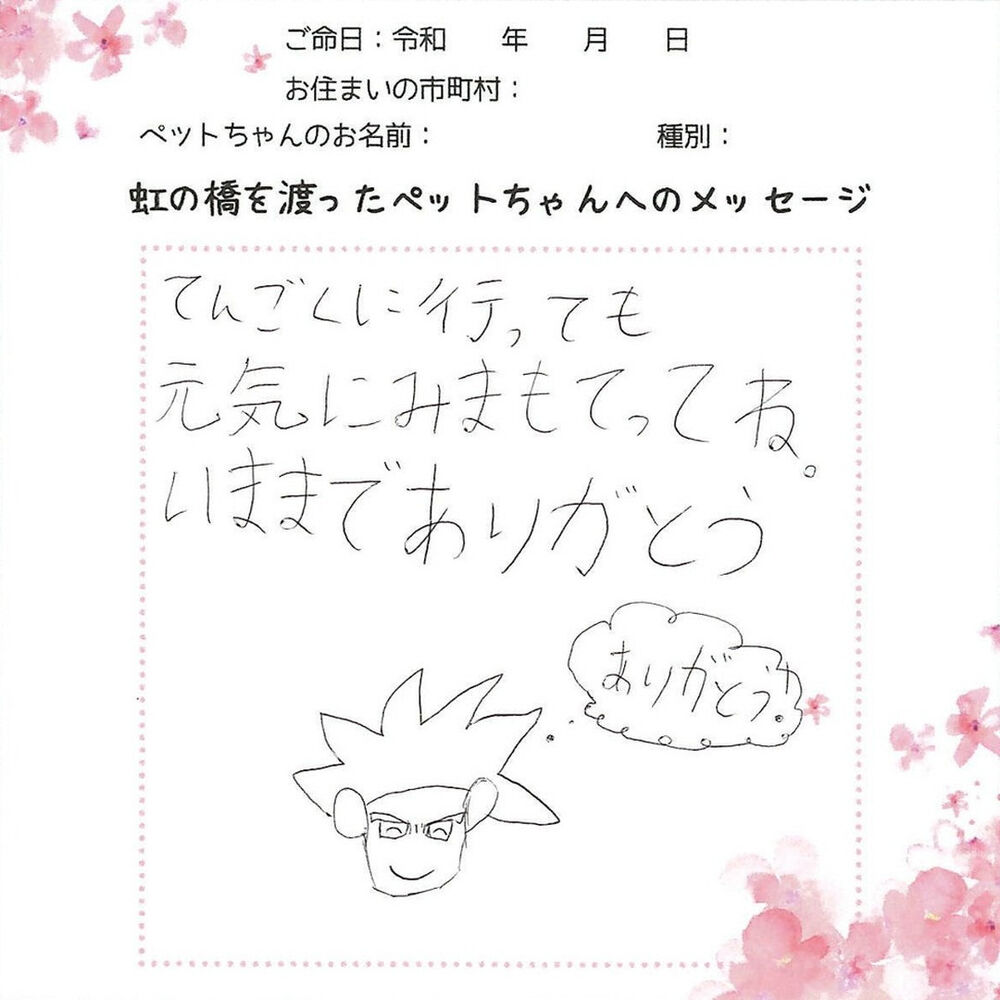 ご命日：令和　　年　　月　　日
お住まいの市町村：
ペットちゃんのお名前：　　　　　　　　種別：
虹の橋を渡ったペットちゃんへのメッセージ
てんごくに行っても
元気にみまもてってね。
いままでありがとう
ありがとう!